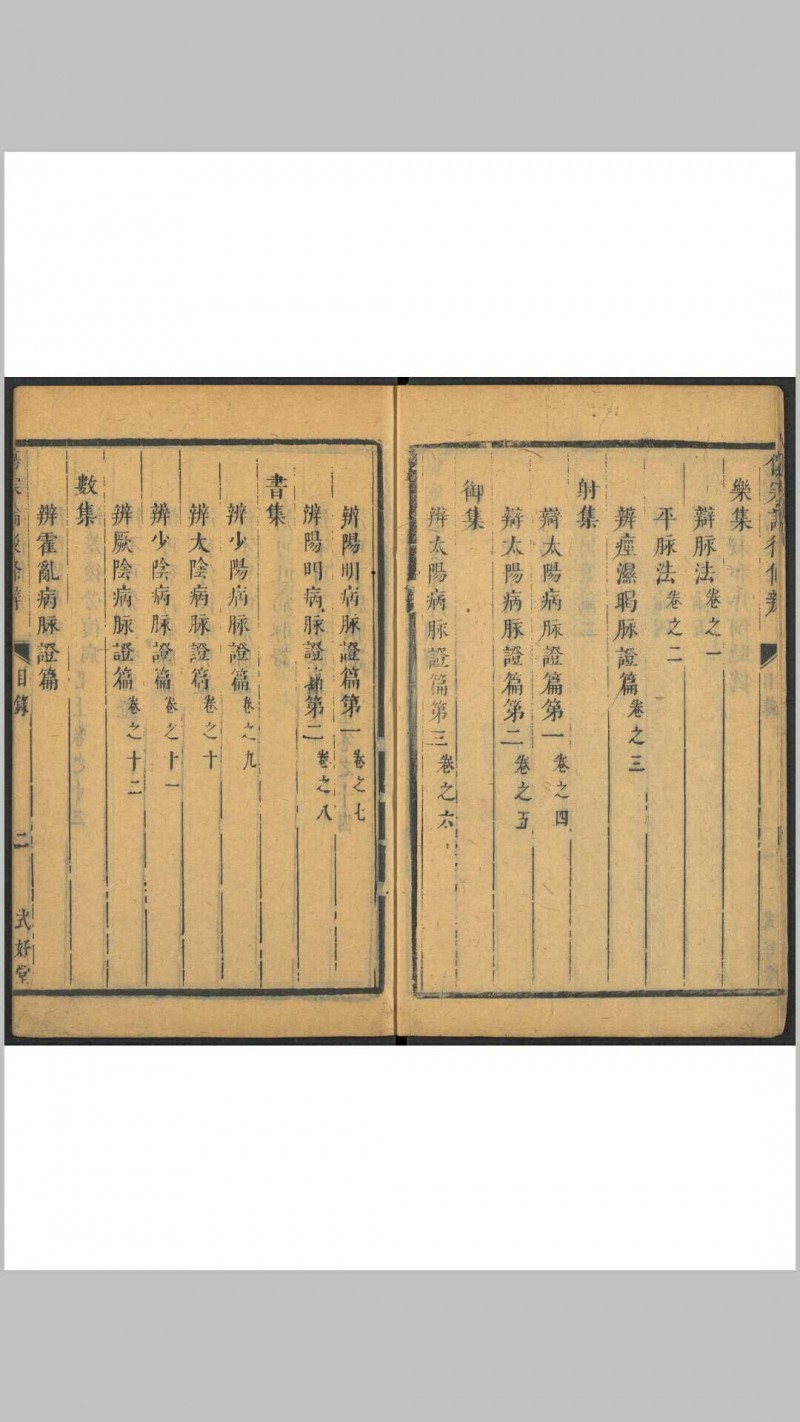 樂集
辯脉法卷之一
平脉法卷之二
辨痙濕暍脉證篇卷之三
射集
辯太陽病脉證篇第一卷之四
辯太陽病脉證篇第二卷之五
御集
辨太陽病脉證篇第三卷之六
辨陽明病脉證篇第一卷之七
辨陽明病脉證篇第二卷之八
書集
辨少陽病脉證篇卷之九
辨太陰病脉證篇卷之十
辨少陰病脉證篇卷之十一
辨厥陰病脉證篇卷之十二
數集
辨霍亂病脉證篇
目錄 二 式好堂